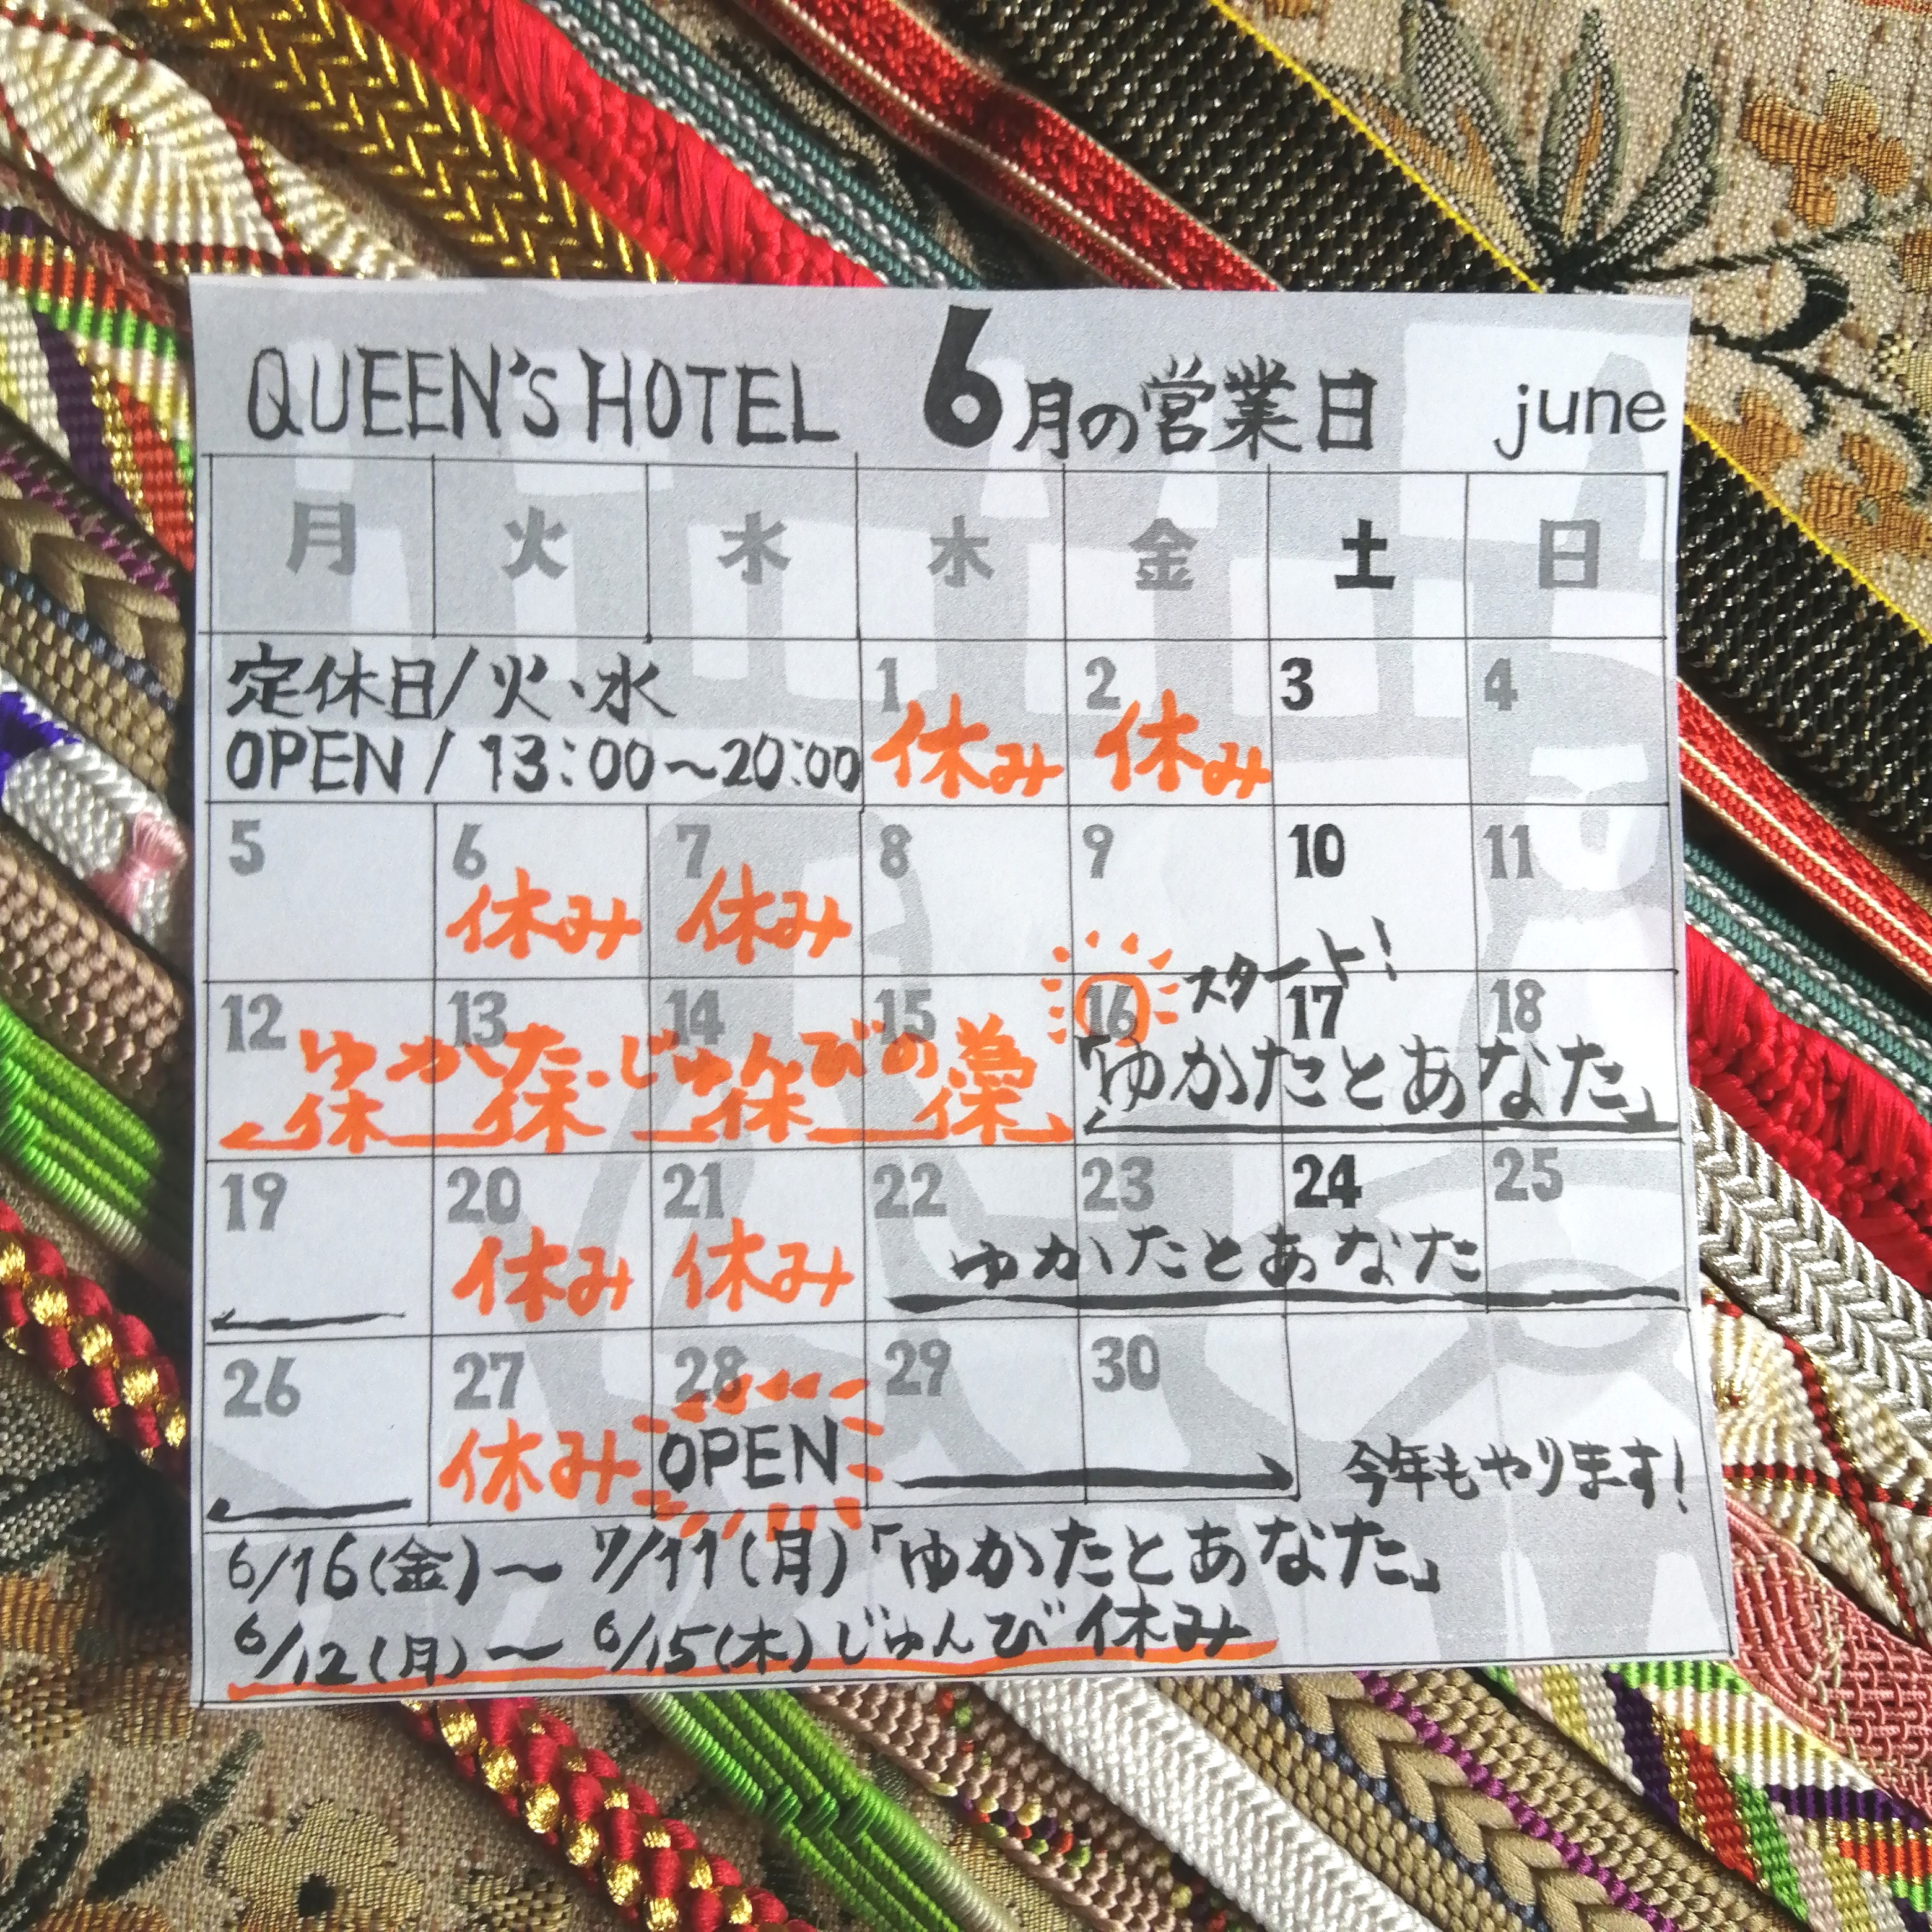 QUEEN'S HOTEL 6月の営業日 june
月 火 水 木 金 土 日
定休日/火・水
OPEN / 13:00〜20:00
1 2 3 4
休み 休み
5 6 7 8 9 10 11
休み 休み
スタート!
12 13 14 15 16 17 18
ゆかた じゅんびの為
休 休 休
「ゆかたとあなた」
19 20 21 22 23 24 25
休み 休み
ゆかたとあなた
26 27 28 29 30
休み OPEN
今年もやります!
6/16(金)〜 7/11(月)「ゆかたとあなた」
6/12(月)〜 6/15(木)じゅんび休み